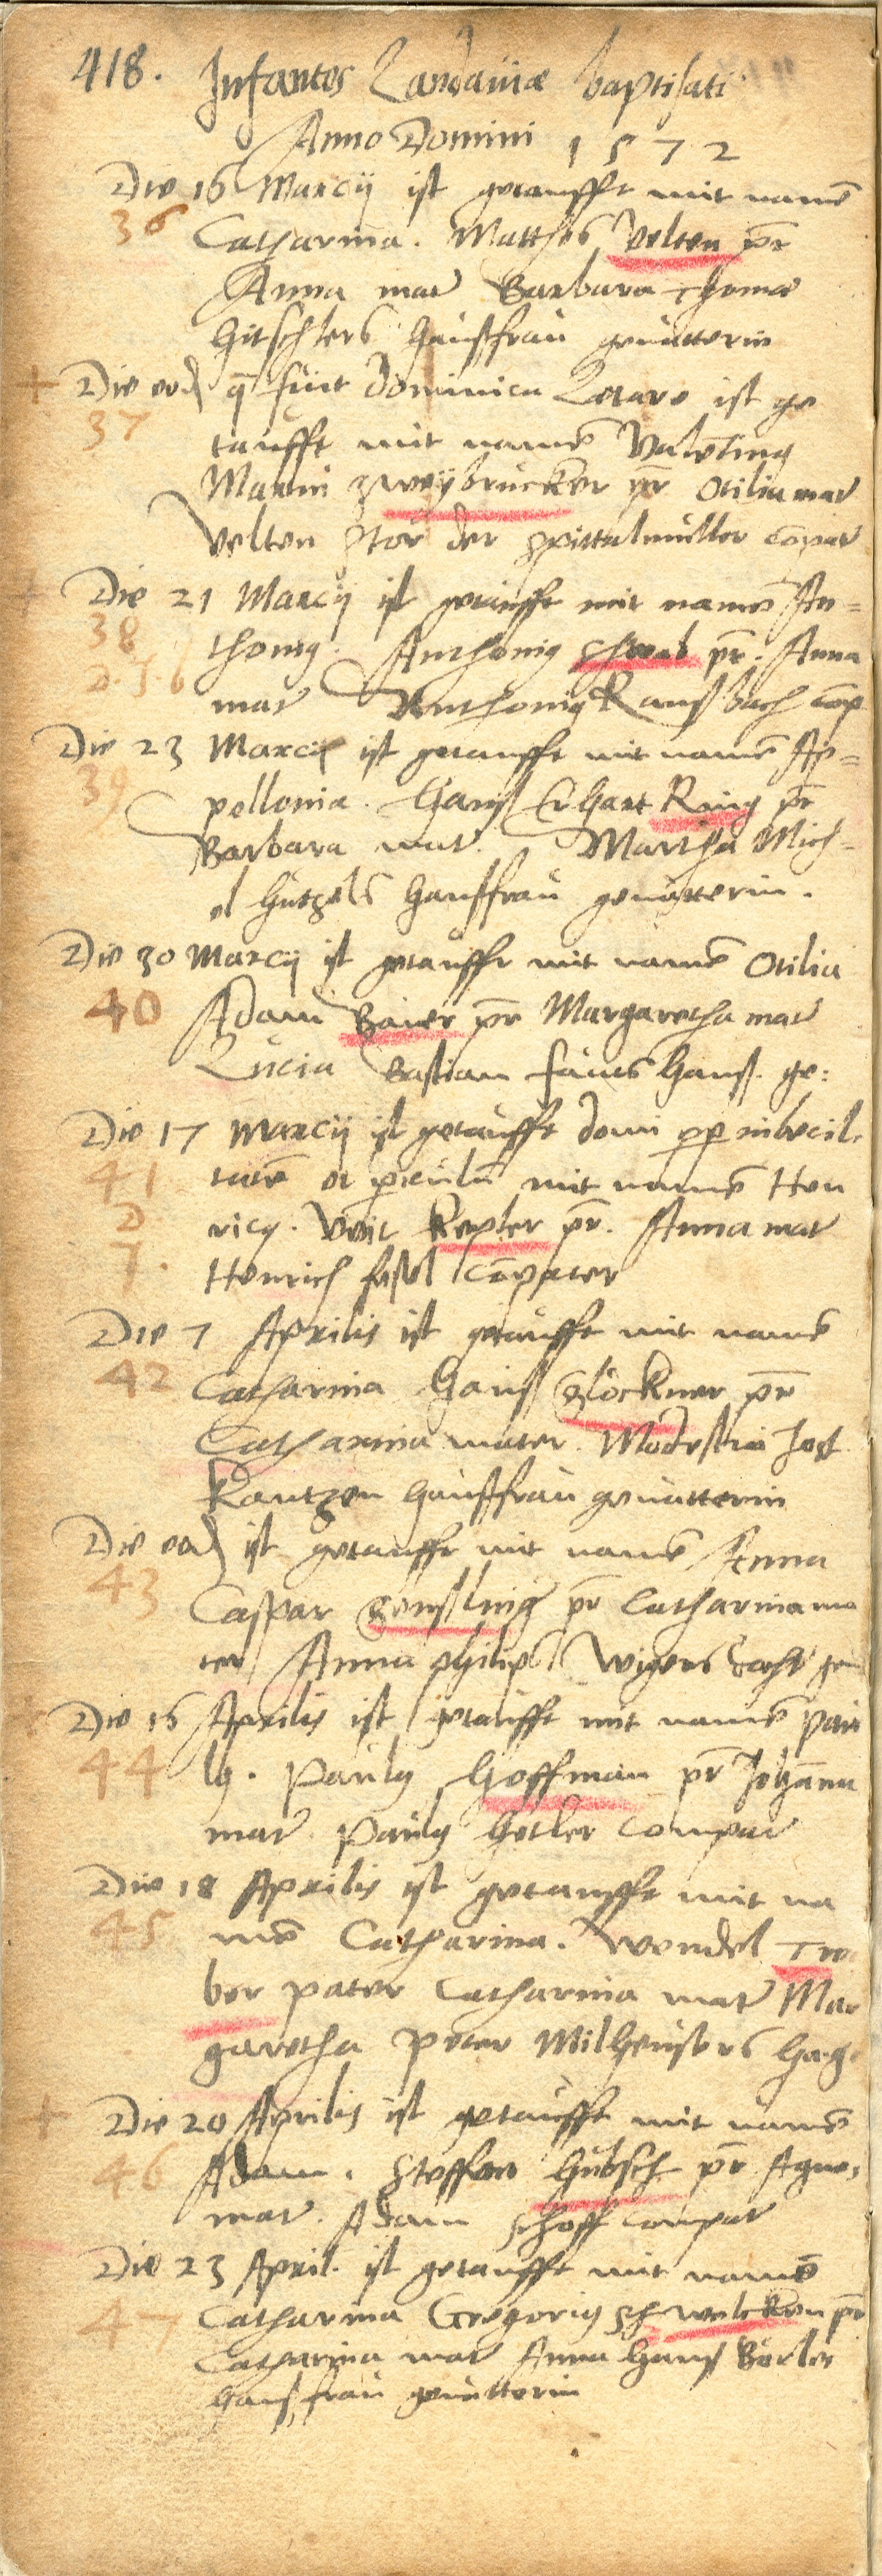 418. Infantes Landauiæ baptisati
Anno Domini 1572
Die 16 Marcij ist getaufft mit namē
36 Catharina. Matthes Velten pr̄
Anna mat Barbara Thomæ
hitschlers haussfrau geuatterin
Die eod q̄ fuit dominica Letare ist ge
37 taufft mit namē Valēting
Martin Zweÿbrucker pr̄ Otilia mat
Velten der spittalmuller cōpat
Die 21 Marcij ist getaufft mit namē An=
38 thonig. Anthonig schwab pr̄. Anna
mat Anthonig Rauss bach cōp
Die 23 Marcij ist getaufft mit namē Ap=
39 pellonia. Hanss Erhart Ring pr̄
Barbara mat. Martha Mich-
el hutzels haussfrau geuatterin.
Die 30 Marcij ist getaufft mit namē Otilia
40 Adam Baier pr̄ Margaretha mat
Lucia Bastian fauts hauss. ge:
Die 17 Marcij ist getaufft domi imbecil-
41 tatē et periculū mit namē Hen
D ricg. Veit Kepler pr̄. Anna mat
7. Henrich fasel cōpater
Die 7 Aprilis ist getaufft mit namē
42 Catharina Hanss Glöckner pr̄
Catharina mater. Modestia Jost
Kantzen haussfrau geuatterin
Die eod ist getaufft mit namē Anna
43 Caspar pr̄ Catharina ma
ter Anna philips Wigers ge
Die 16 Aprilis ist getaufft mit namē Pau
44 lg. Paulg Hoffman pr̄ Johāna
mat. Paulg Hetler compat
Die 18 Aprilis ist getaufft mit na
45 mē Catharina. Wendel Tre
ber pater Catharina mat Mar
garetha Peter Milheusers ha. ge
Die 20 Aprilis ist getaufft mit namē
46 Adam. Steffan Hubsch pr̄ Agnes
mat. Adam schoff compat
Die 23 April. ist getaufft mit namē
47 Catharina Gregorig schwelcken pr̄
Catharina mat Anna Hanss Börles
haussfrau geuatterin